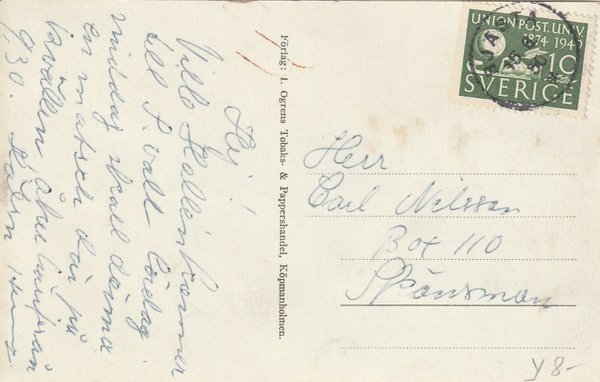 Hej!
Ville Hallin kommer
till S.vall lördag
middag skall döma
en match där på
kvällen åker
9,30.
Förlag: I. Ogrens Tobaks- & Pappershandel, Köpmanholmen.
UNION POST. UNIV.
1874 1949
10
SVERIGE
Herr
Carl Nilsson
Box 110
Skönsmon
Y 8-